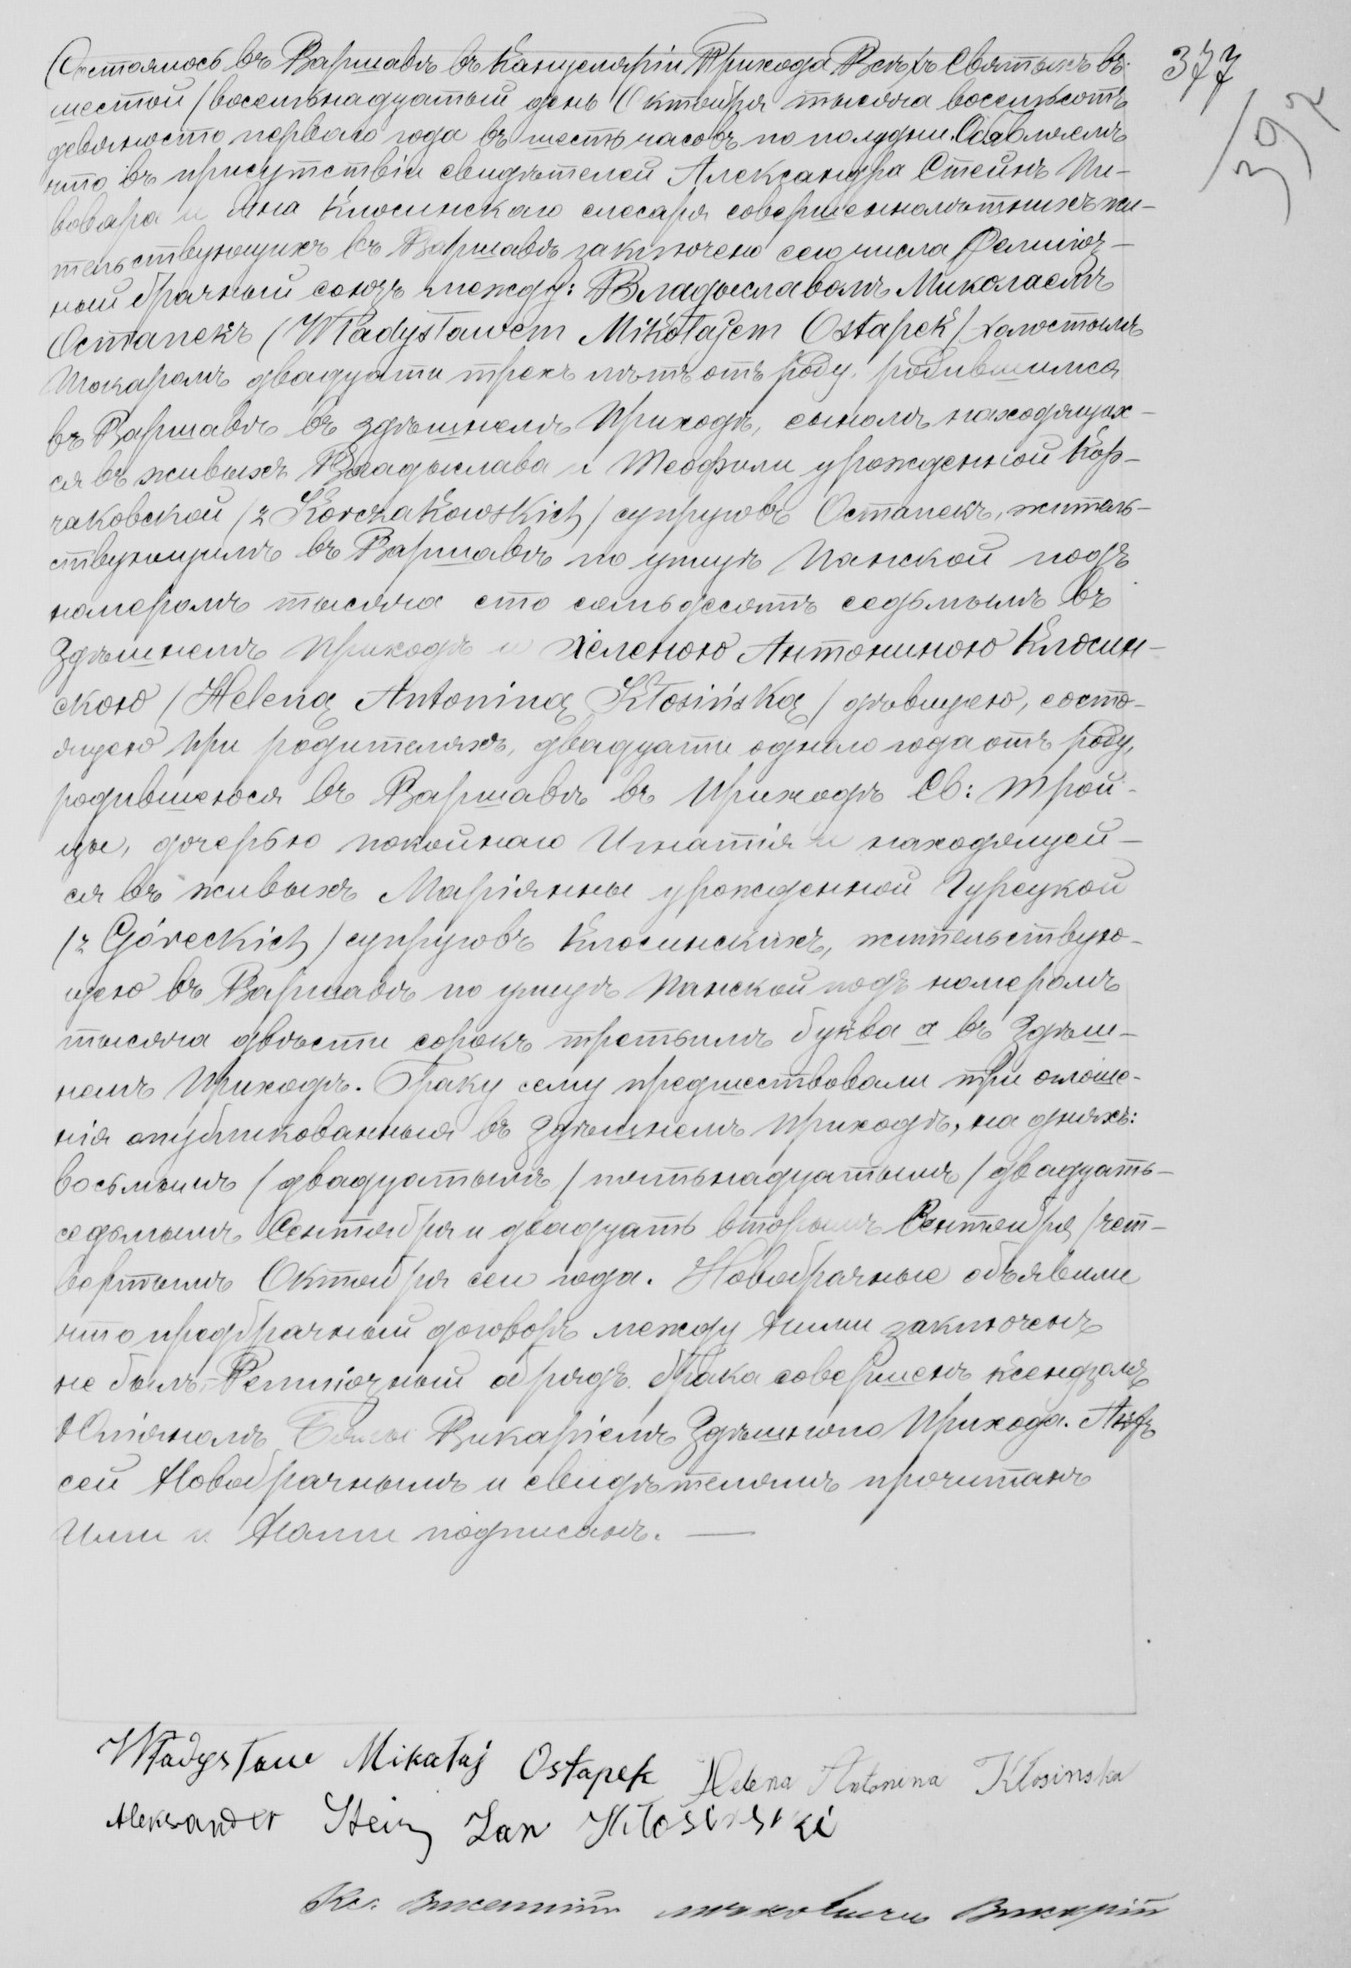 Состоялось въ Варшавѣ въ Канцеляріи Прихода Всѣхъ Святыхъ въ: 377
шестой /восемьнадцатый день Октября тысяча восемьсотъ 392
девяносто перваго года въ шесть часовъ по полудни. Объявляемъ
что въ присутствіи свидѣтелей Александра Стейнъ Пи-
вовара и Яна Клосинскаго слесаря совершеннолѣтнихъ жи-
тельствующихъ въ Варшавѣ заключено сего числа Религіоз-
ный брачный союзъ между: Владыславомъ Миколаемъ
Остапекъ (Władysławem Mikołajem Ostapek) холостымъ
Токаромъ двадцати трехъ лѣтъ отъ роду, родившимся
въ Варшавѣ въ здѣшнемъ Приходѣ, сыномъ находящих-
ся въ живыхъ Владыслава и Теофили урожденной Кор-
чаковской /z Korczakowskich/ супруговъ Остапекъ, житель-
ствующимъ въ Варшавѣ по улицѣ Панской подъ
номеромъ тысяча сто семьдесятъ седьмымъ въ
Здѣшнемъ Приходѣ и Хеленою Антониною Клосин-
скою /Heleną Antoniną Kłosińską/ дѣвицею, состо-
ящею при родителяхъ, двадцати одного года отъ роду,
родившеюся въ Варшавѣ въ Приходѣ Св: Трой-
цы, дочерью покойнаго Игнатія и находящей-
ся въ живыхъ Маріянны урожденной Гурецкой
/z Góreckich/ супруговъ Клосинскихъ, жительствую-
щею въ Варшавѣ по улицѣ Панской подъ номеромъ
тысяча двѣсти сорокъ третьимъ буква а въ Здѣш-
немъ Приходѣ. Браку сему предшествовали три оглаше-
нія опубликованныя въ Здѣшнемъ Приходѣ, на дняхъ:
восьмымъ /двадцатымъ/ пятьнадцатымъ /двадцать-
седьмымъ Сентября и двадцать вторымъ Сентября /чет-
вертымъ Октября сего года. Новобрачные объявили
что предбрачный договоръ между Ними заключенъ
не былъ. Религіозный обрядъ брака совершенъ Ксендзомъ
Юліяномъ Викаріемъ Здѣшняго Прихода. Актъ
сей Новобрачнымъ и свидѣтелямъ прочитанъ
Ими и Нами подписанъ. —
Władysław Mikałaj Ostapek Helena Antonina Kłosinska
Aleksander Stein Jan Kłosinski
Кс. Викарій